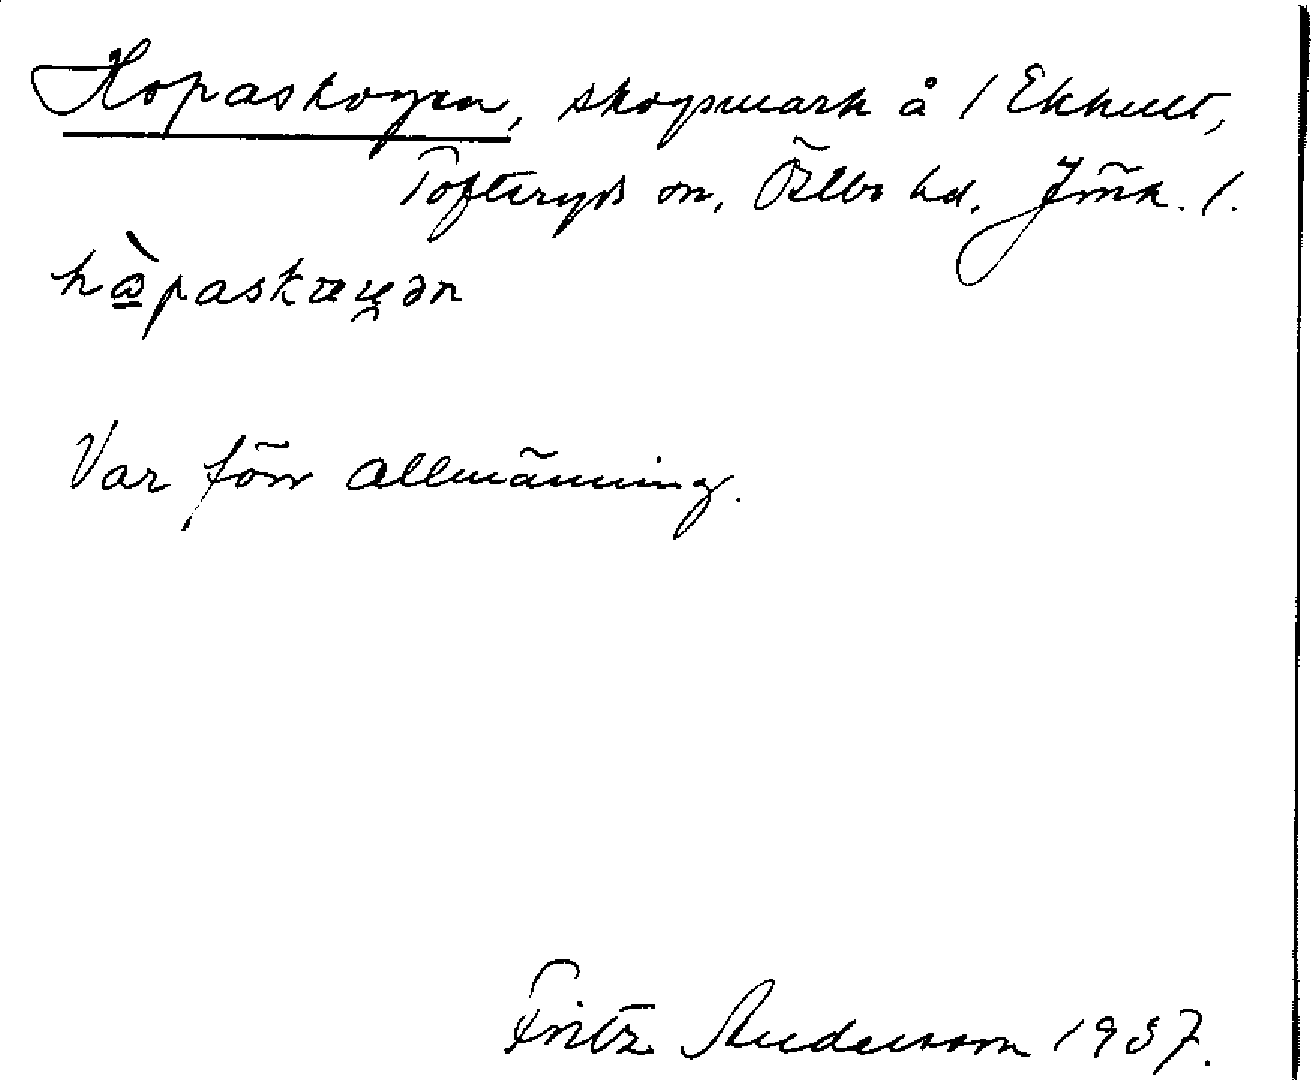 Hopaskogen, skogsmark å 1 Ekhult,
Tofteryds sn, Östbo hd. Jönk. l.
Var förr allmänning.
Fritz Andersson 1937.